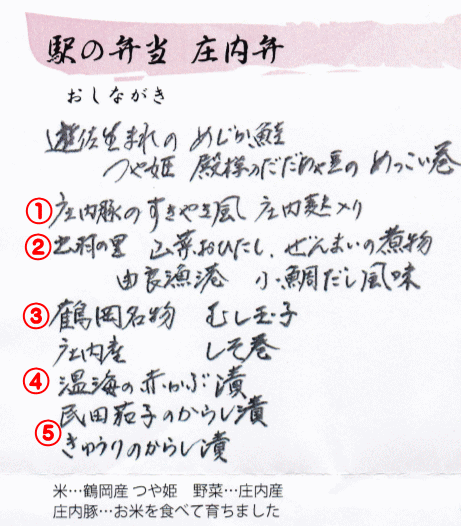 駅の弁当 庄内弁
おしながき
遊佐生まれの めじか鮭
つや姫 殿様のだだちゃ豆の めっこい巻
①庄内豚のすきやき風 庄内麩入り
②出羽の里 山菜おひたし、ぜんまいの煮物
由良漁港 小鯛だし風味
③鶴岡名物 むし玉子
庄内産 しそ巻
④温海の赤かぶ漬
民田茄子のからし漬
⑤きゅうりのからし漬
米…鶴岡産 つや姫 野菜…庄内産
庄内豚…お米を食べて育ちました